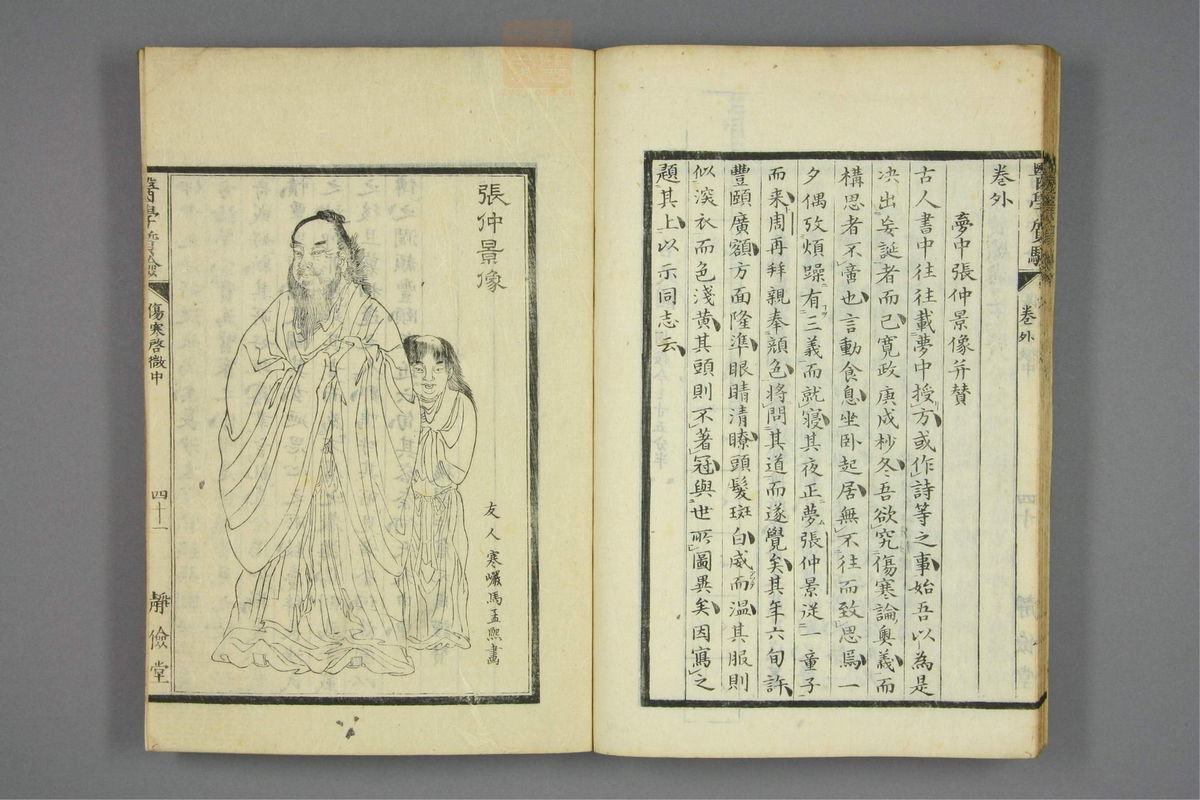 卷外
夢中張仲景像并賛
古人書中往往載夢中授方或作詩等之事始吾以為是
决出妄誕者而已寛政庚戌杪冬吾欲究傷寒論奥義而
構思者不啻也言動食息坐卧起居無不往而致思焉一
夕偶攷煩躁有三義而就寝其夜正夢張仲景従一童子
而来周再拜親奉顔色將問其道而遂覺矣其年六旬許
豐頤廣額方面隆準眼睛清瞭頭髮斑白威而温其服則
似深衣而色淺黄其頭則不著冠與世所圖異矣因寫之
題其上以示同志云
卷外
張仲景像
友人寒巖馬孟熙畫
傷寒啓微中
四十一
靜儉堂